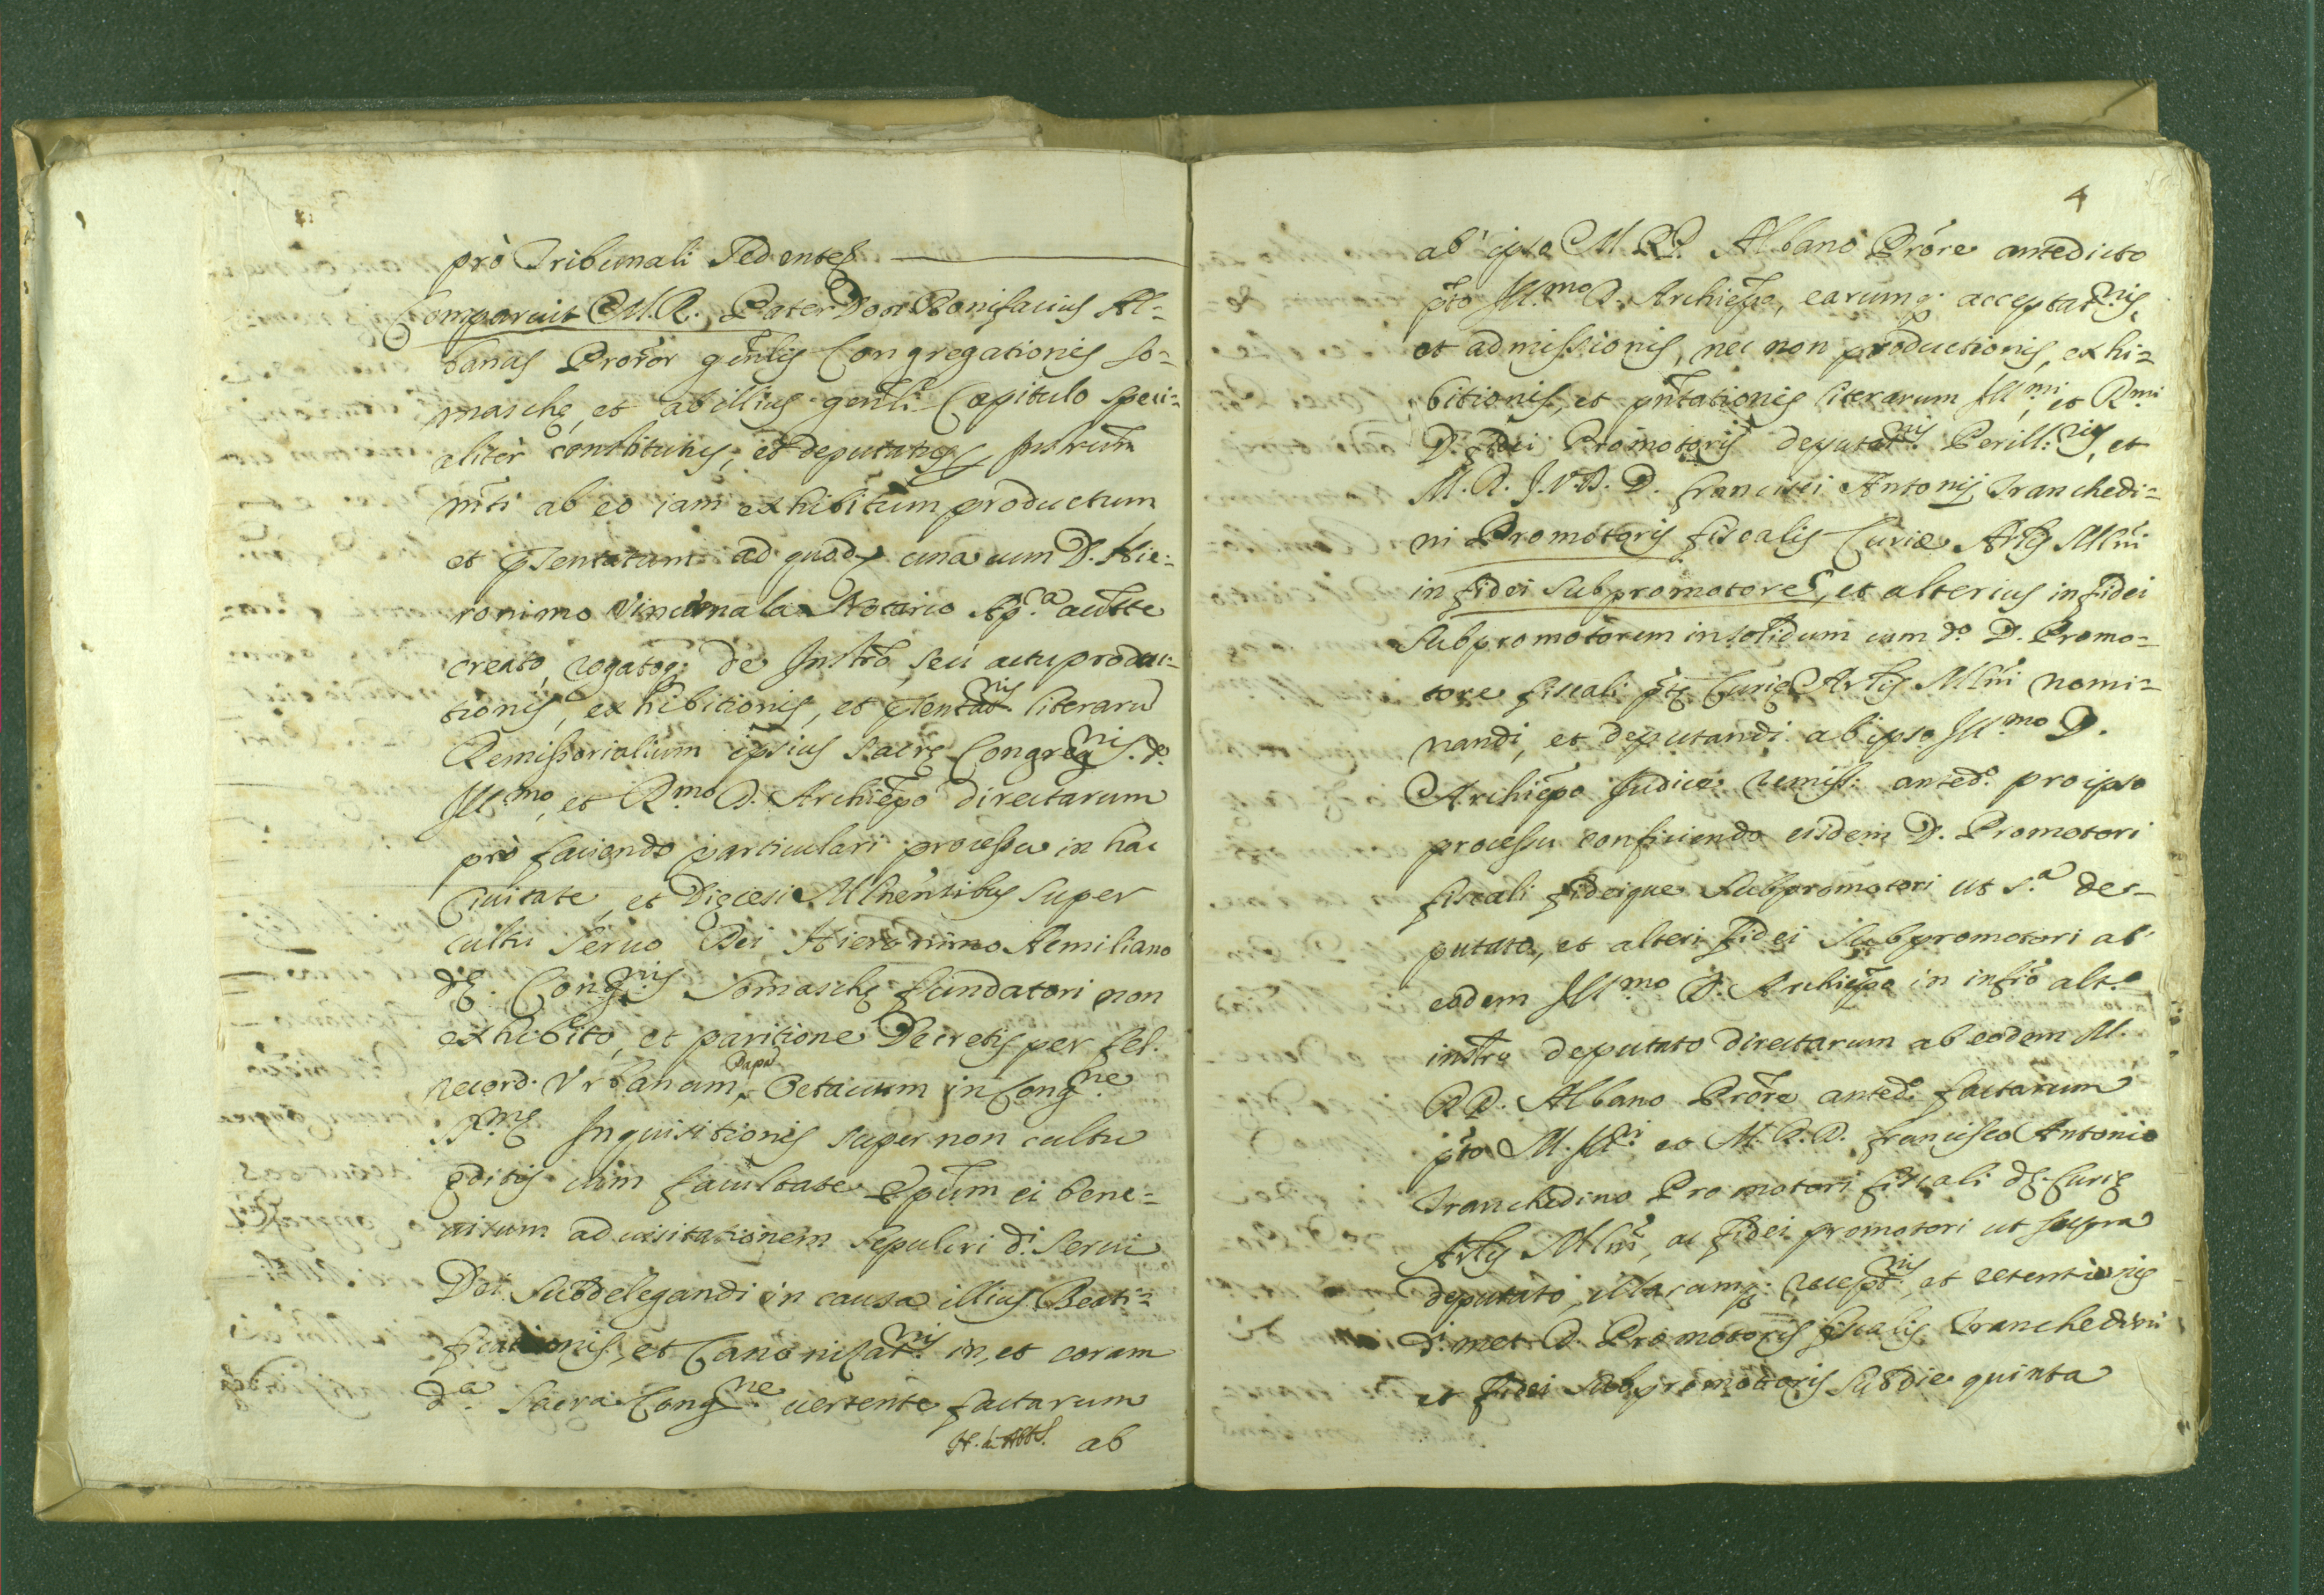 prò Tribunali Sedentes
Comparuit M. R. Pater Don Bonifacius Al=
banus Proror gnlis Congregationis So=
maschę, et ab illius gnli Capitulo speci=
aliter constitutus, et deputatus, Instrum
mti ab eo iam exhibitum productum
et pσentatum ad quod, una cum D. Hie=
ronimo Vincimala Notario Ap.ca autte
creato, rogatoq; de Instro, seu actu produc=
tionis, exhibitionis, et pσentatnis literarũ
Remissorialium ipsius Sacrę Congregnis. do.
Ill.mo, et R.mo D. Archiepo directarum
prò faciendo particulari processu in hac
Ciuitate, et Dięcesi Mlhensibus super
cultu Seruo Dei Hieronimo Aemiliano
dę. Congnis Somaschę fundatori non
exhibito, et paritione Decretis per fel.
record. Vrbanum Papã Octauum in Congne
S.mę Inquisitionis super non cultu
ęditis cum facultate Epum ei bene=
uisum ad uisitationem sepulcri di. Serui
Dei Subdelegandi in causa illius Beati=
ficationis, et Canonizat.nis in, et coram
d.a Sacra Congne. uertente factarum
ab
4
ab ipso M. R.P. Albano Prore antedicto
pto Ill.mo D. Archiepo, earumq; acceptatnis,
et admissionis, nec non productionis, exhi=
bitionis, et pntationis literarum Ill.mi, et R.mi
D. fidei Promotoris deputatnis Perill.ris, et
M. R. J. V. D. D. Francisci Antonij Tranchedi=
ni Promotoris fiscalis Curiæ Arlis Mlni
in fidei Subpromotorem, et alterius in fidei
Subpromotorem in solidum cum do. D. Promo=
tore fiscali ptę Curię Arlis Mlni nomi=
nandi, et deputandi ab ipso Ill.mo D.
Archiepo Judice remiss: anted.o pro ipso
processu conficiendo eidem D. Promotori
fiscali fideique Subpromotori ut s.a de=
putato, et alteri fidei Subpromotori ab
eodem Ill.mo D. Archiepo in infro alt.o
instro deputato directarum ab eodem M.
R.P. Albano Prore anted.o factarum
pto M. Ill.ri et M. R. D. Francisco Antonio
Tranchedino Promotori fiscali dę. Curię
Arlis Mlni, ac fidei promotori ut supra
deputato, illarumq; recept.nis, et retentionis
di. met D. Promotoris fiscalis Tranchedini
et fidei Subpromotoris Sub die quinta